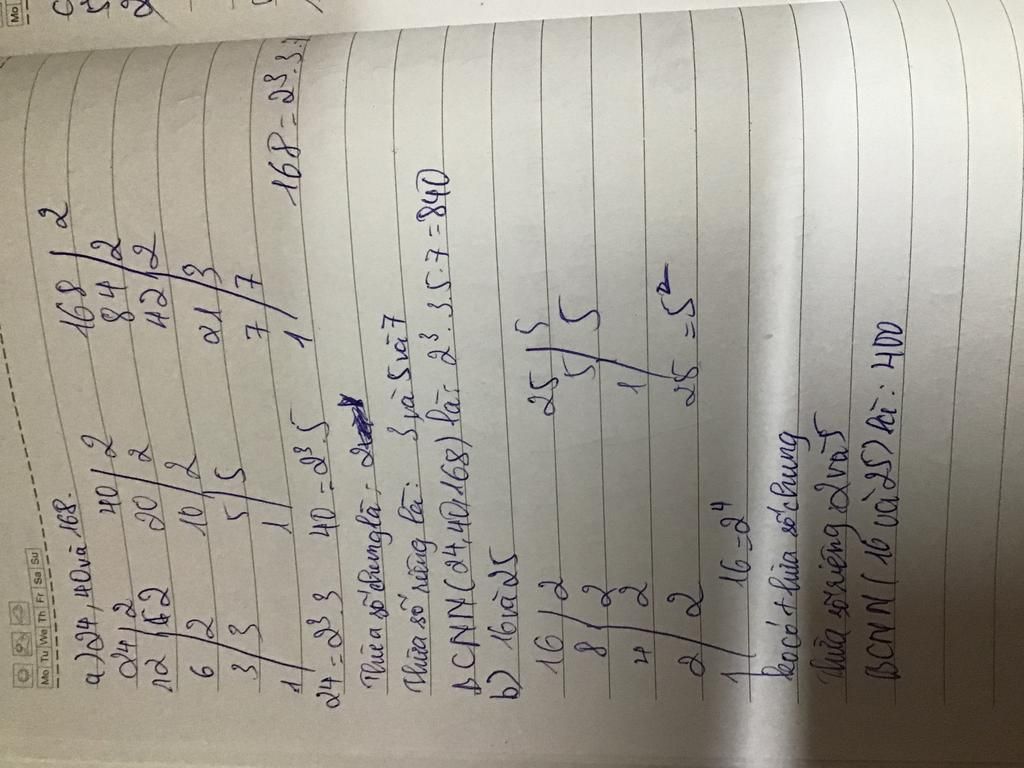 Mo Tu We Th Fr Sa Su
a) 24, 40 và 168.
24 / 2 40 / 2 168 / 2
12 / 2 20 / 2 84 / 2
6 / 2 10 / 2 42 / 2
3 / 3 5 / 5 21 / 3
1 1 7 / 7
24 = 2³.3 40 = 2³.5 1 168 = 2³.3.
Thừa số chung là: 2
Thừa số riêng là: 3 và 5 và 7
BCNN (24, 40, 168) là: 2³.3.5.7 = 840
b) 16 và 25
16 / 2 25 / 5
8 / 2 5 / 5
4 / 2 1
2 / 2 25 = 5²
1 16 = 2⁴
ko có thừa số chung
Thừa số riêng 2 và 5
BCNN (16 và 25) là: 400